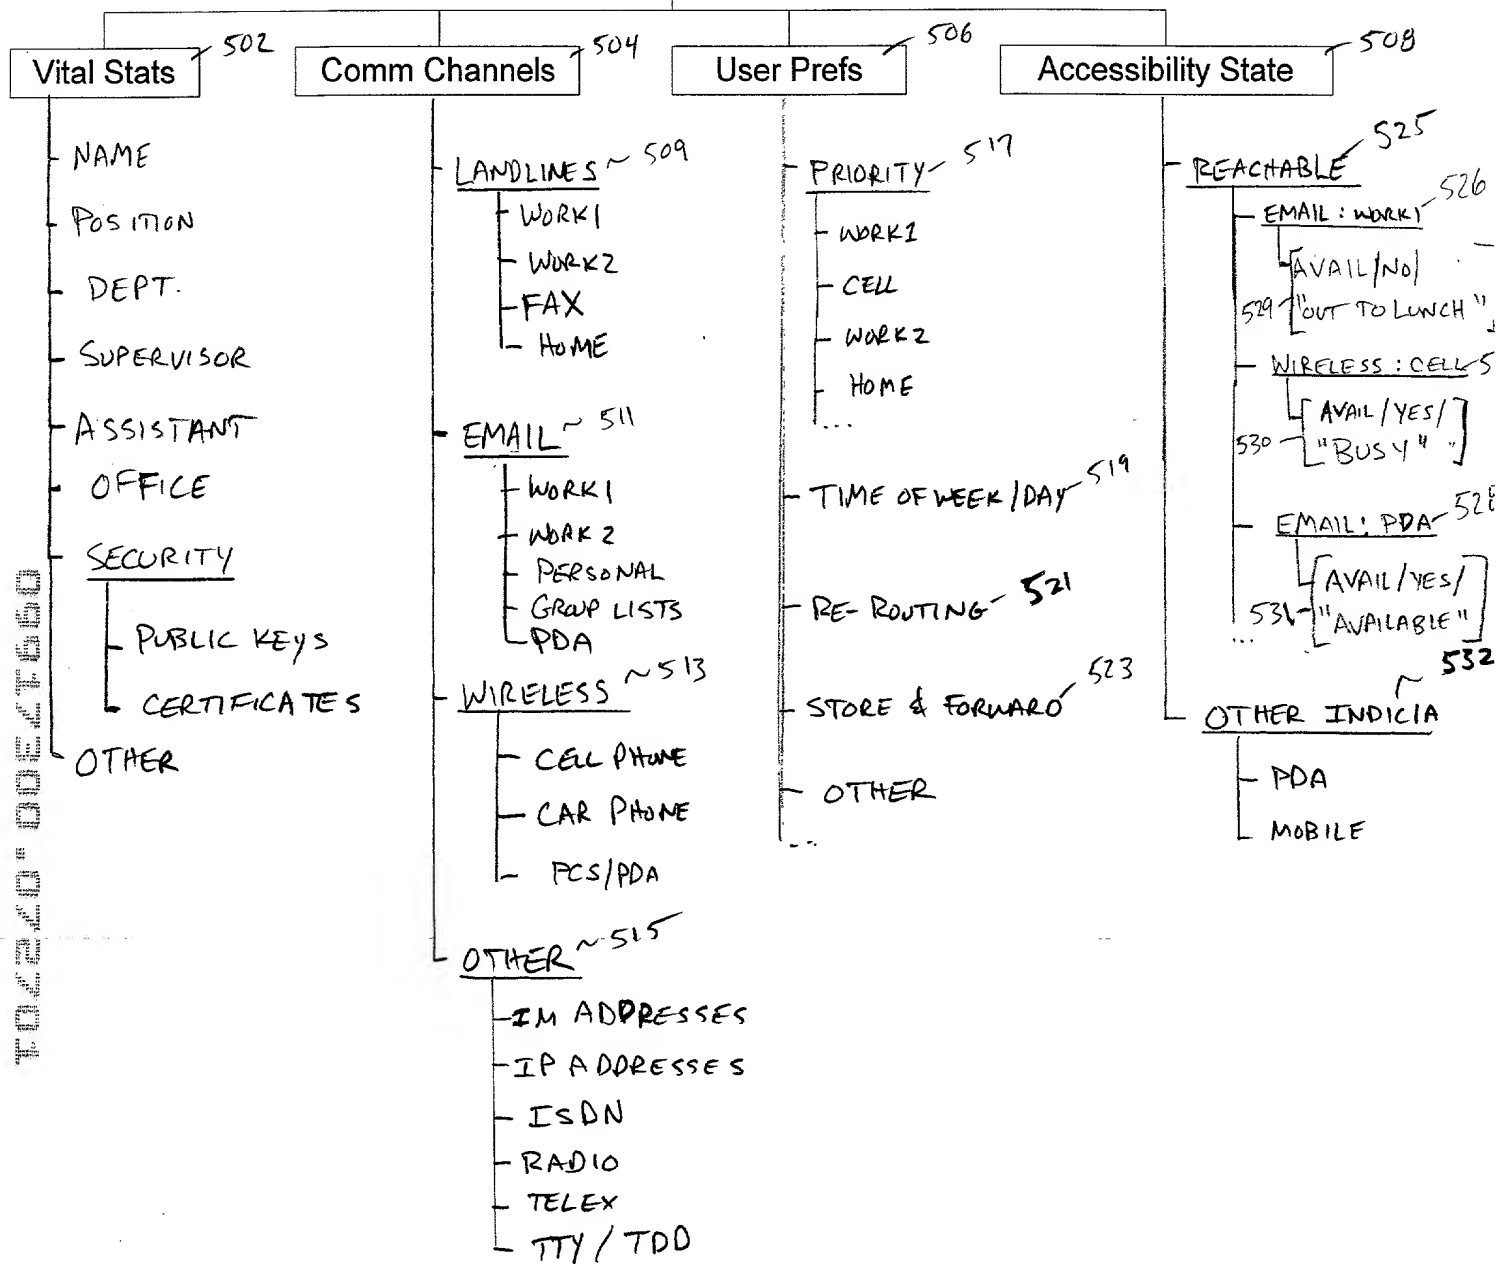 Vital Stats 502
NAME
POSITION
DEPT.
SUPERVISOR
ASSISTANT
OFFICE
SECURITY
PUBLIC KEYS
CERTIFICATES
OTHER
Comm Channels 504
LANDLINES ~ 509
WORK1
WORK2
FAX
HOME
EMAIL ~ 511
WORK1
WORK 2
PERSONAL
GROUP LISTS
PDA
WIRELESS ~ 513
CELL PHONE
CAR PHONE
PCS/PDA
OTHER ~ 515
IM ADDRESSES
IP ADDRESSES
ISDN
RADIO
TELEX
TTY / TDD
User Prefs 506
PRIORITY 517
WORK1
CELL
WORK2
HOME
...
TIME OF WEEK/DAY 519
RE-ROUTING 521
STORE & FORWARD 523
OTHER
...
Accessibility State 508
REACHABLE 525
EMAIL: WORK1 526
[AVAIL/NO/
529 "OUT TO LUNCH"]
WIRELESS: CELL
[AVAIL/YES/
530 "BUSY"]
EMAIL: PDA 528
[AVAIL/YES/
531 "AVAILABLE"]
...
OTHER INDICIA ~ 532
PDA
MOBILE